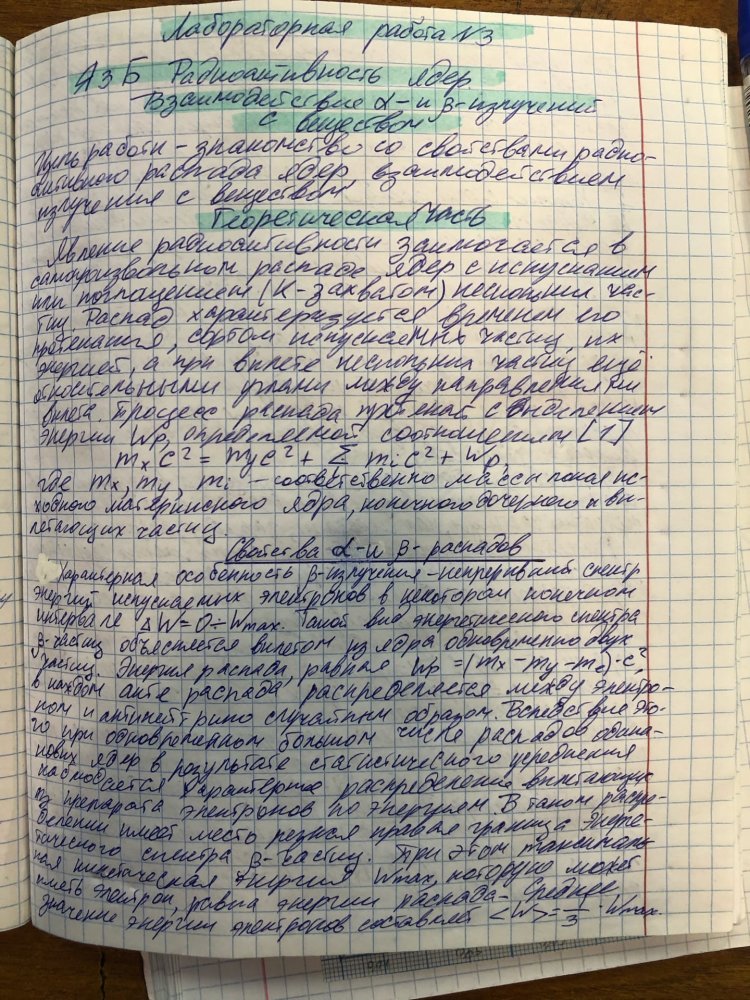 Лабораторная работа N3
А3Б Радиоактивность ядер.
Взаимодействие α- и β-излучений
с веществом
Цель работы - знакомство со свойствами радио-
активного распада ядер, взаимодействием
излучения с веществом.
Теоретическая часть
Явление радиоактивности заключается в
самопроизвольном распаде ядер с испусканием
или поглощением (К-захватом) нескольких час-
тиц. Распад характеризуется временем его
протекания, сортом испускаемых частиц, их
энергией, а при вылете нескольких частиц ещё
относительными углами между направлениями
вылета. Процесс распада протекает с выделением
энергии Wp, определяемой соотношением [1]
mxc² = myc² + Σ mic² + Wp,
где mx, my, mi - соответственно массы покоя ис-
ходного материнского ядра, конечного дочернего и вы-
летающих частиц.
Свойства α- и β-распадов
Характерная особенность β-излучения - непрерывный спектр
энергий испускаемых электронов в некотором конечном
интервале ΔW=0÷Wmax. Такой вид энергетического спектра
β-частиц объясняется вылетом из ядра одновременно двух
частиц. Энергия распада, равная Wp = (mx-my-me)·c²,
в каждом акте распада распределяется между электро-
ном и антинейтрино случайным образом. Вследствие это-
го при одновременном большом числе распадов одина-
ковых ядер в результате статистического усреднения
наблюдается характерное распределение вылетающих
из препарата электронов по энергиям. В таком распре-
делении имеет место резкая правая граница энерге-
тического спектра β-частиц. При этом максималь-
ная кинетическая энергия Wmax, которую может
иметь электрон, равна энергии распада. Среднее
значение энергии электронов составляет <W>=1/3·Wmax.